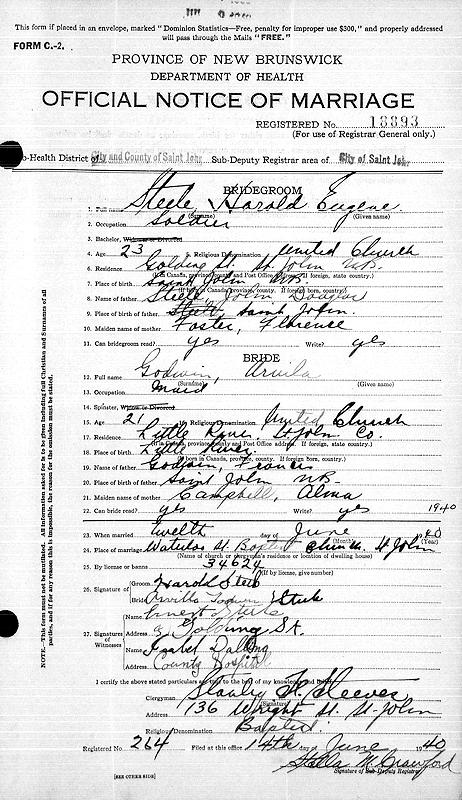 This form if placed in an envelope, marked "Dominion Statistics—Free, penalty for improper use $300," and properly addressed
will pass through the Mails "FREE."
FORM C.-2.
PROVINCE OF NEW BRUNSWICK
DEPARTMENT OF HEALTH
OFFICIAL NOTICE OF MARRIAGE
REGISTERED No. 18893
(For use of Registrar General only.)
Health District of City and County of Saint John Sub-Deputy Registrar area of City of Saint John
BRIDEGROOM
1. Steele Harold Eugene
(Surname) (Given name)
2. Occupation Soldier
3. Bachelor, Widower or Divorced
4. Age 23 5. Religious Denomination United Church
6. Residence Golding St. St. John N.B.
(If in Canada, province, county and Post Office address. If foreign, state country.)
7. Place of birth Saint John N.B.
(If born in Canada, province, county. If foreign born, country.)
8. Name of father Steele, John Douglas
9. Place of birth of father Saint John.
10. Maiden name of mother Foster, Florence
11. Can bridegroom read? yes Write? yes
BRIDE
12. Full name Godwin, Arvila
(Surname) (Given name)
13. Occupation Maid
14. Spinster, Widow or Divorced
15. Age 21 Religious Denomination United Church
17. Residence Little River St. John Co.
(If in Canada, province, county and Post Office address. If foreign, state country.)
18. Place of birth Little River.
(If born in Canada, province, county. If foreign born, country.)
19. Name of father Godwin, Francis
20. Place of birth of father Saint John N.B.
21. Maiden name of mother Campbell, Alma
22. Can bride read? yes Write? yes 1940
23. When married Twelfth day of June 1940
(Month) (Year)
24. Place of marriage Waterloo St. Baptist Church St. John
(Name of church or clergyman's residence or location of dwelling house)
25. By license or banns 34624
(If by license, give number)
26. Signature of
Groom Harold Steele
Bride Godwin Steele
27. Signatures of Witnesses
Name Ernest Steele
Address Golding St.
Name Isabel Dalling
Address County Hospital
I certify the above stated particulars are true to the best of my knowledge and belief.
Clergyman Stanley H. Steeves
Address 136 Wright St. St. John
Religious Denomination Baptist
Registered No. 264 Filed at this office 14th day of June 1940
Stella M. Crawford
Signature of Sub-Deputy Registrar
[SEE OTHER SIDE]
NOTE.—This form must not be mutilated. All information asked for is to be given including full Christian and Surnames of all
parties, and if for any reason this is impossible, the reason for the omission must be stated.